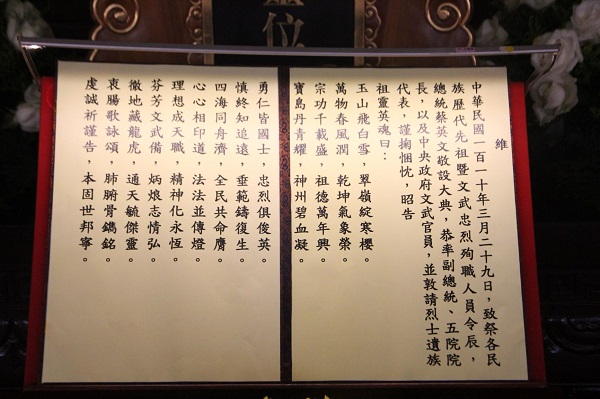 位
維
中華民國一百一十年三月二十九日，致祭各民
族歷代先祖暨文武忠烈殉職人員令辰，
總統蔡英文敬設大典，恭率副總統、五院院
長，以及中央政府文武官員，並敦請烈士遺族
代表，謹掬悃忱，昭告
祖靈英魂曰：
玉山飛白雪，翠嶺綻寒櫻。
萬物春風潤，乾坤氣象榮。
宗功千載盛，祖德萬年興。
寶島丹青耀，神州碧血凝。
勇仁皆國士，忠烈俱俊英。
慎終知追遠，垂範鑄復生。
四海同舟濟，全民共命膺。
心心相印道，法法並傳燈。
理想成天職，精神化永恆。
芬芳文武備，炳烺志情弘。
徹地藏龍虎，通天毓傑靈。
衷腸歌詠頌，肺腑骨鐫銘。
虔誠祈謹告，本固世邦寧。